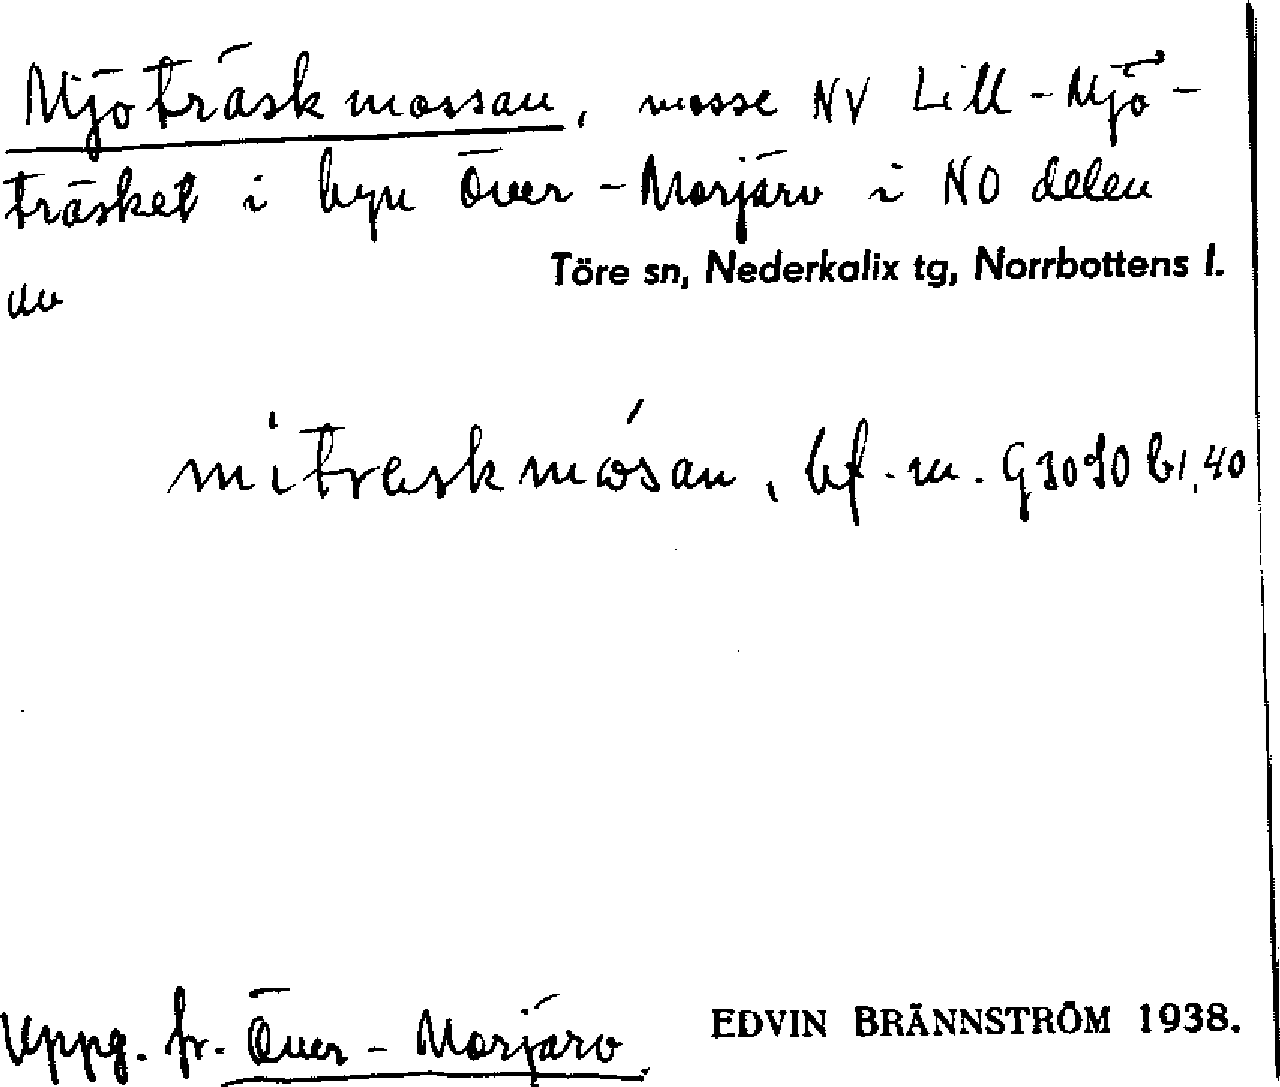 Mjöträskmossan, mosse NV Lill-Mjö-
träsket i byn Över-Morjärv i NO delen
av
Töre sn, Nederkalix tg, Norrbottens l.
mitraskmósan, bf. m. G3090 b1,40
Uppg. fr. Över-Morjärv.
EDVIN BRÄNNSTRÖM 1938.